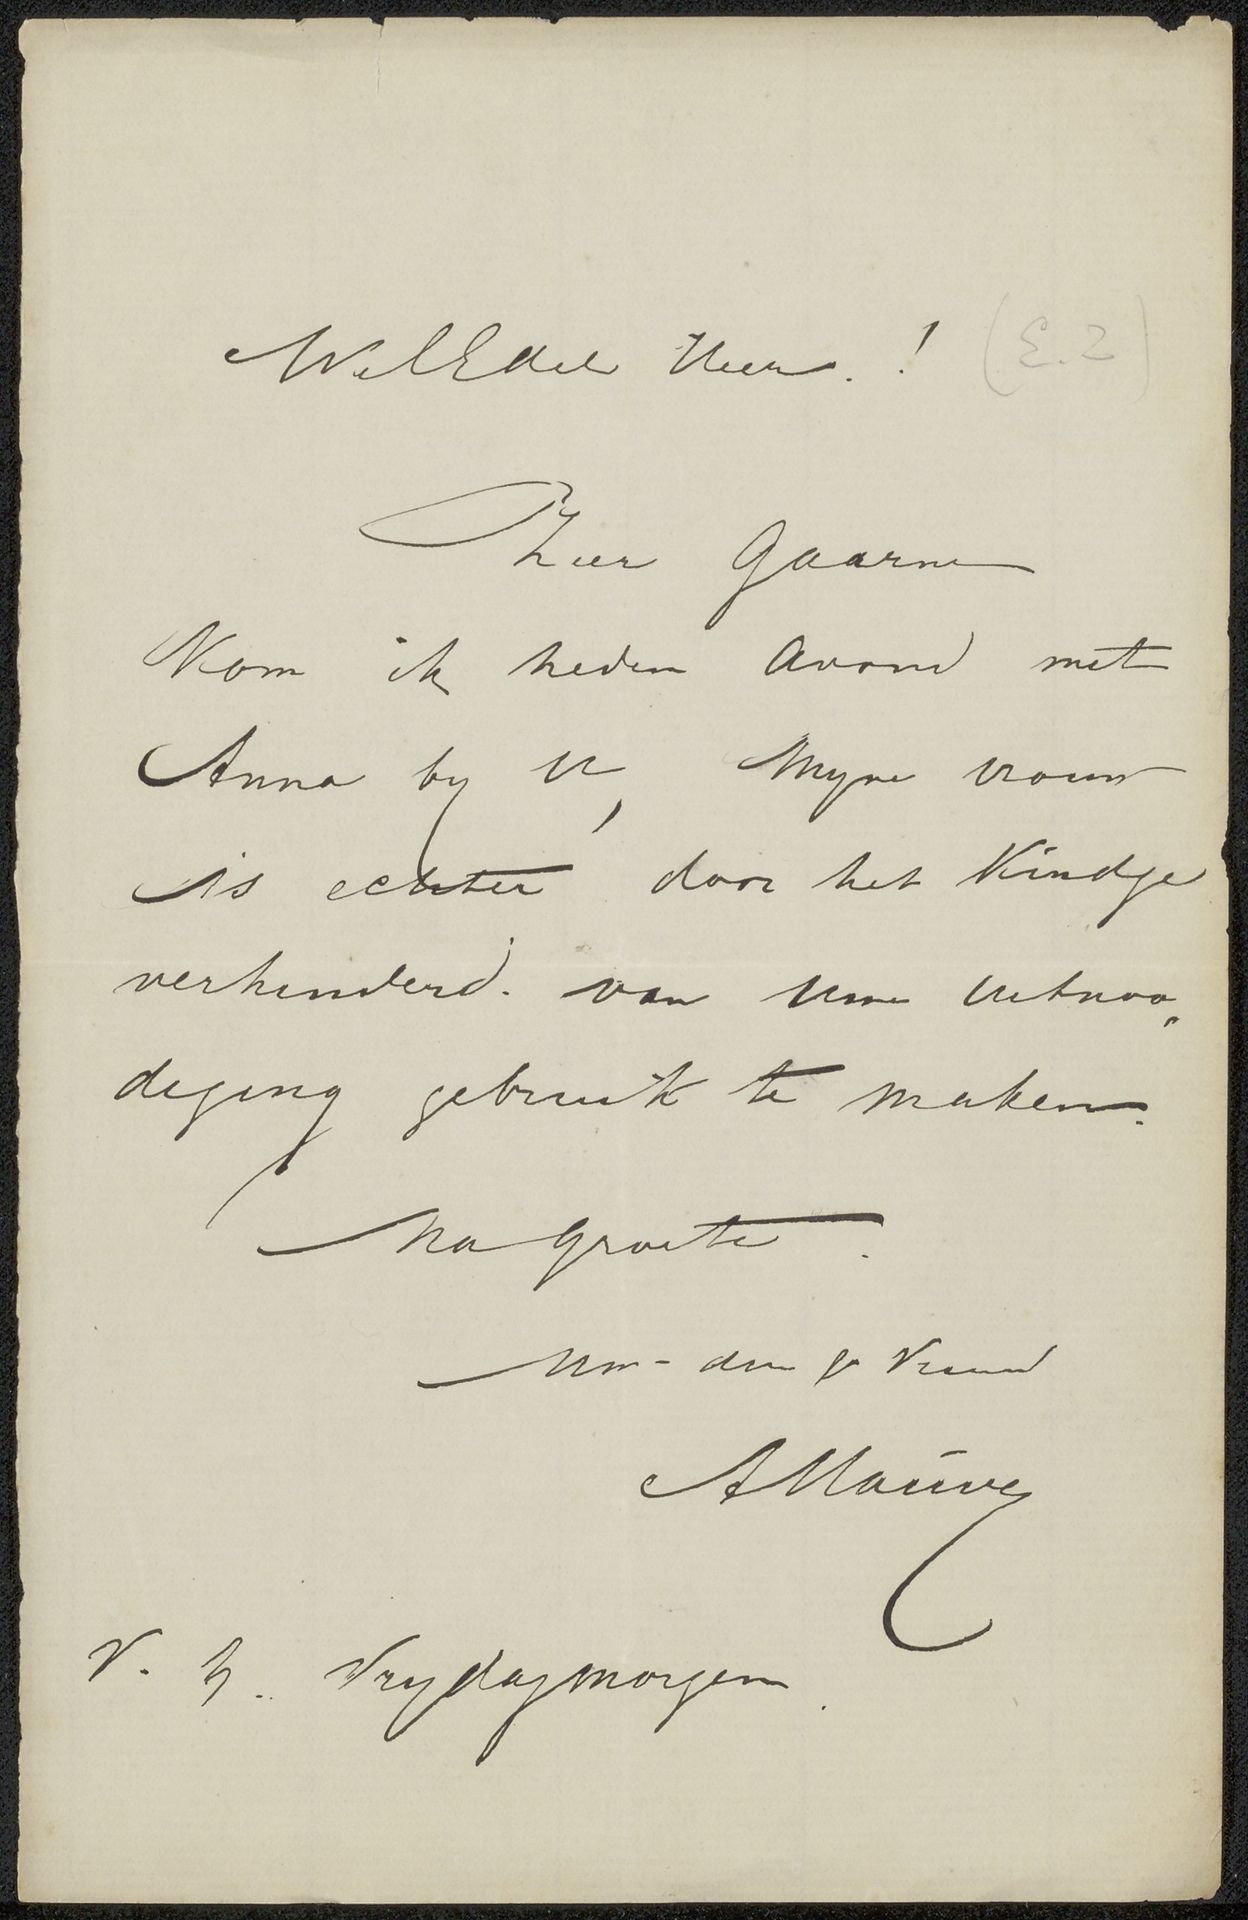 WelEdel Heer. !
(E.2)
Zeer Gaarne
Kom ik heden Avond met
Anna by U, Myne vrouw
is echter door het Kindje
verhinderd. van Uwe uitnoo„
diging gebruik te maken.
Na Groete.
Uw - dw Vriend
AMauve
V. h. Vrydagmorgen.